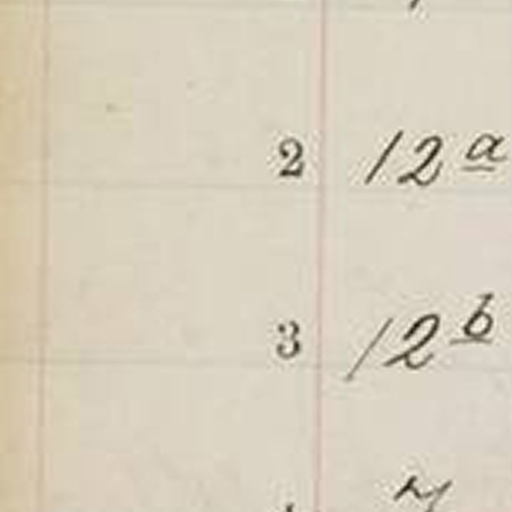 2 12a
3 12b